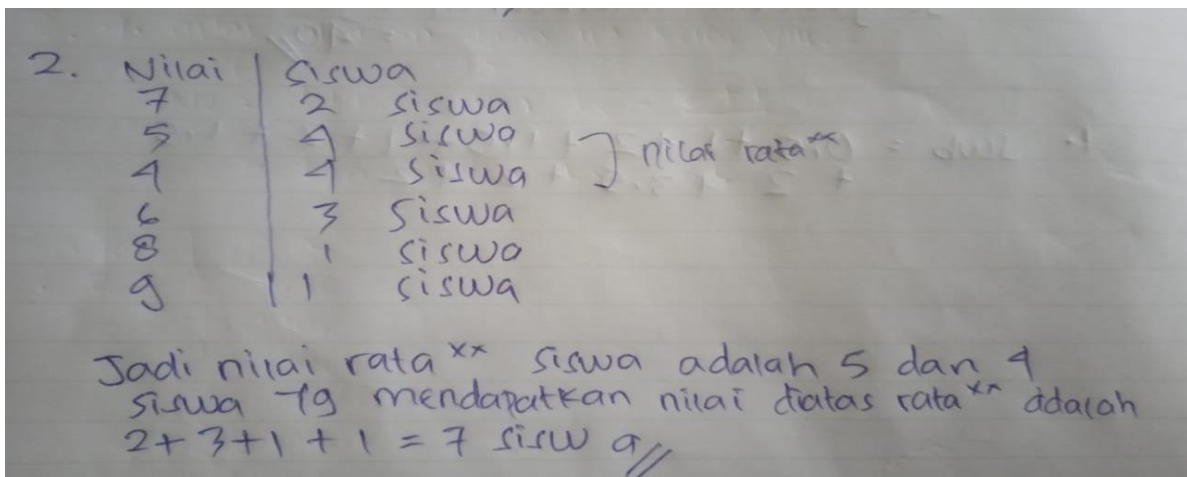 2. Nilai | Siswa
7 2 siswa
5 4 siswa
4 4 siswa ] nilai rata xx
6 3 siswa
8 1 siswa
9 1 siswa
Jadi nilai rata xx siswa adalah 5 dan 4
siswa yg mendapatkan nilai diatas rata xx adalah
2+3+1+1 = 7 siswa //